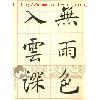 無雨色
入雲深